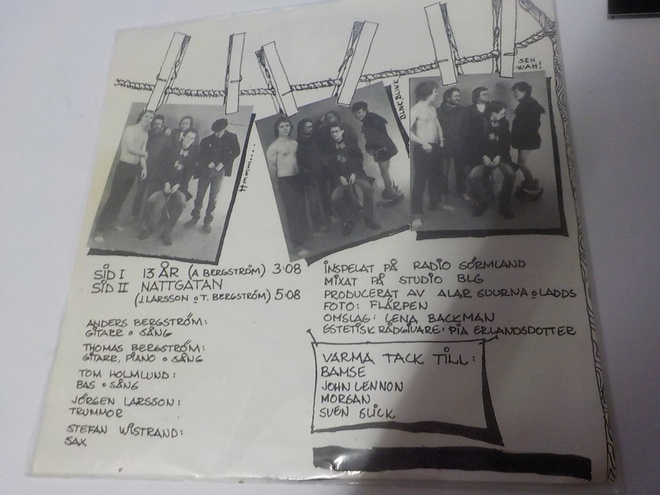 SEH WAH!
BLINK BLINK
Hmmm....
SID I 13 ÅR (A BERGSTRÖM) 3·08
SID II NATTGATAN
(J. LARSSON o T. BERGSTRÖM) 5·08
ANDERS BERGSTRÖM:
GITARR o SÅNG
THOMAS BERGSTRÖM:
GITARR, PIANO o SÅNG
TOM HOLMLUND:
BAS o SÅNG
JÖRGEN LARSSON:
TRUMMOR
STEFAN WISTRAND:
SAX
INSPELAT PÅ RADIO SÖRMLAND
MIXAT PÅ STUDIO BLG
PRODUCERAT AV ALAR SUURNA o LADDS
FOTO: FLÄRPEN
OMSLAG: LENA BACKMAN
ESTETISK RÅDGIVARE: PIA ERLANDSDOTTER
VARMA TACK TILL:
BAMSE
JOHN LENNON
MORGAN
SVEN GLICK